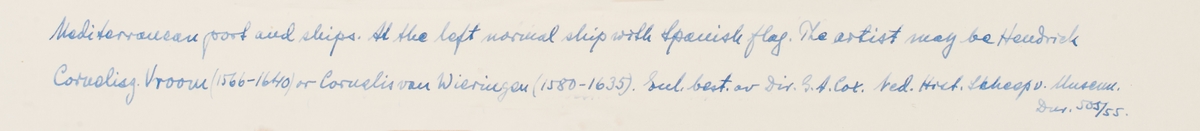 Mediterranean port and ships. At the left normal ship with Spanish flag. The artist may be Hendrick
Cornelisz. Vroom (1566-1640) or Cornelis van Wieringen (1580-1635). Enl. best. av Dir. G.A. Cox. Ned. Hist. Scheepv. Museum.
Dnr. 505/55.